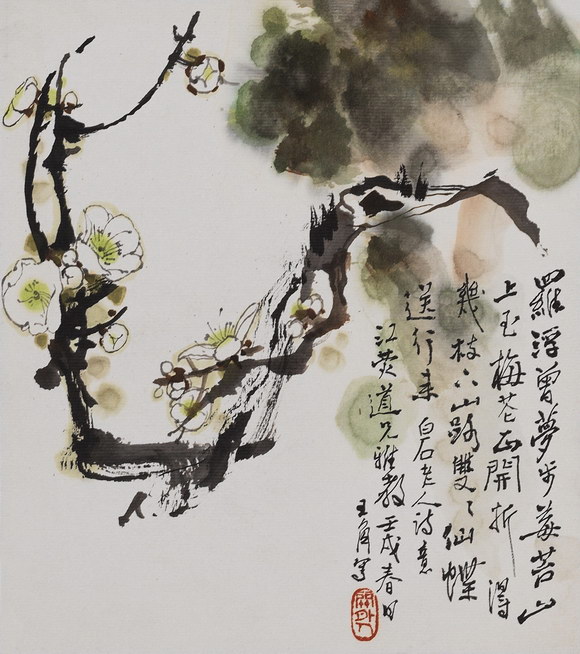 羅浮曾夢步莓苔山
上玉梅花正開折得
幾枝下山路雙々仙蝶
送行來 白石老人詩意
江道兄雅教 壬戌春日
王角写